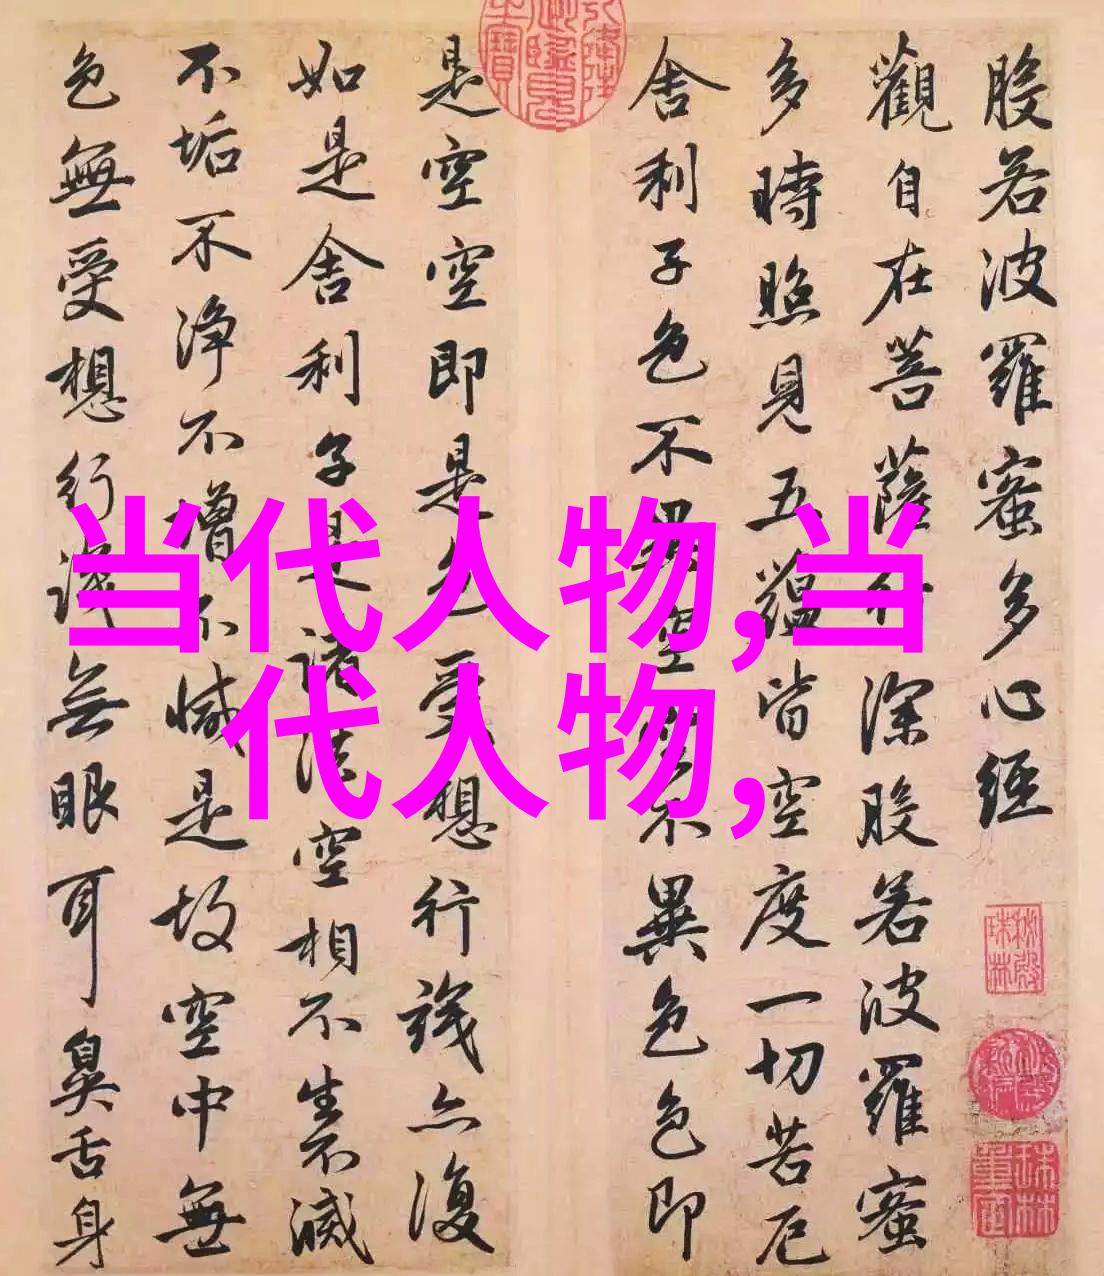 般若波羅蜜多心經
觀自在菩薩行深般若波羅蜜
多時照見五蘊皆空度一切苦厄
舍利子色不異空空不異色色即
是空空即是色受想行識亦復
如是舍利子是諸法空相不生不滅
不垢不淨不增不減是故空中無
色無受想行識無眼耳鼻舌身
当代人物,当
代人物,